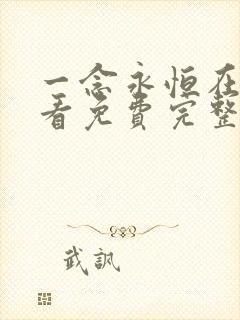 一念永恒在
看免费完整
武訊